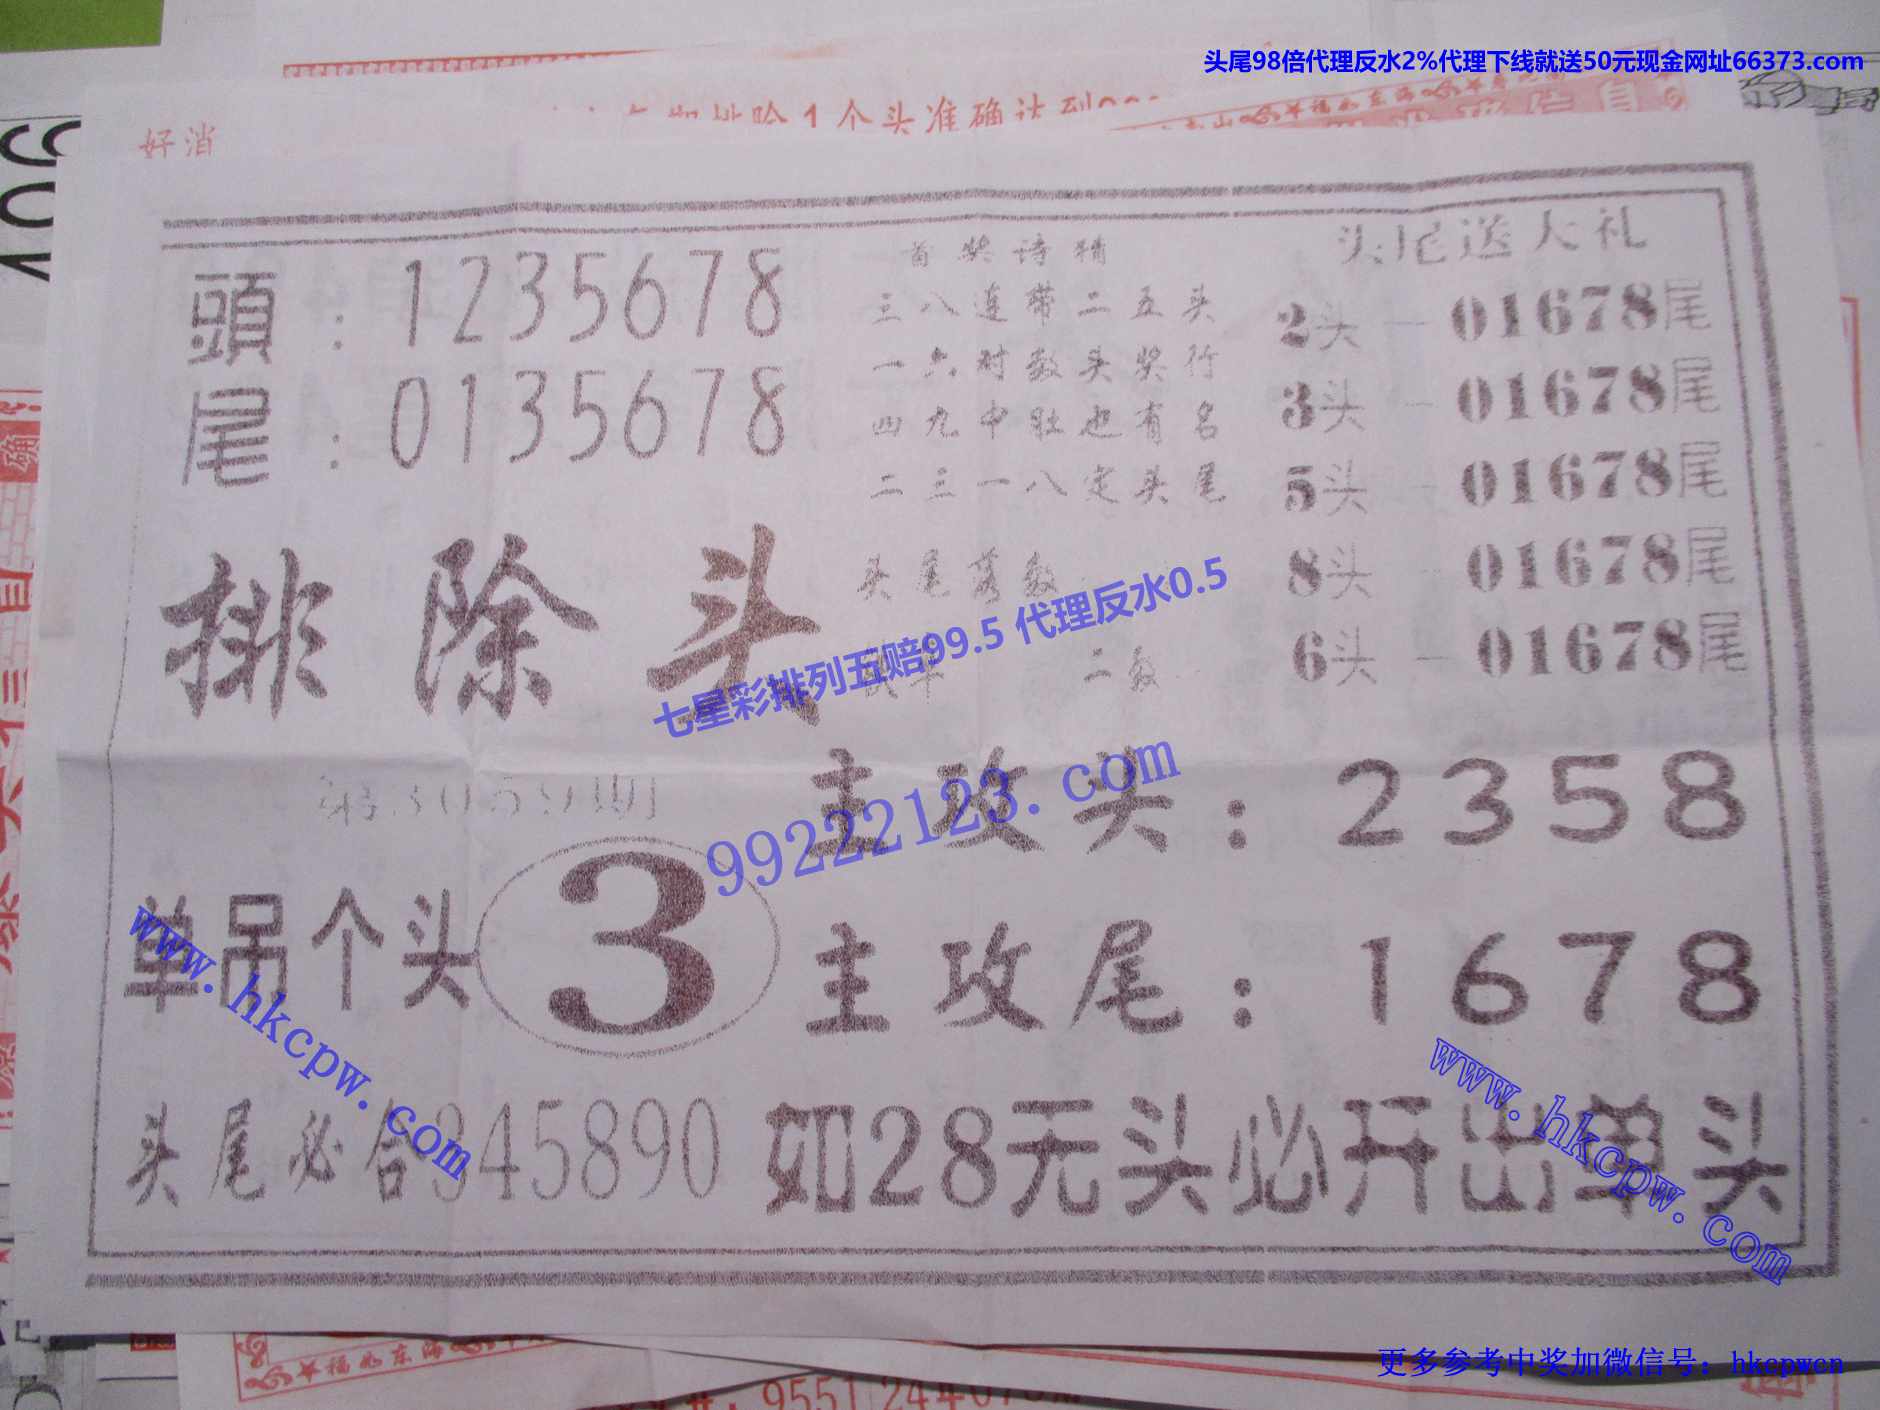 头尾98倍代理反水2%代理下线就送50元现金网址66373.com
好消
个头准确达到
頭：1235678
尾：0135678
首奖诗精
三八连带二五头
一六对数头奖行
四九中肚也有名
二三一八定头尾
头尾落数
二数
头尾送大礼
2头—01678尾
3头—01678尾
5头—01678尾
8头—01678尾
6头—01678尾
排除头
七星彩排列五赔99.5 代理反水0.5
99222123.com
第30591期
单吊个头3
主攻头：2358
主攻尾：1678
www.hkcpw.com
www.hkcpw.com
头尾必合345890
如28无头必开出单头
福如东海
更多参考中奖加微信号：hkcpwcn